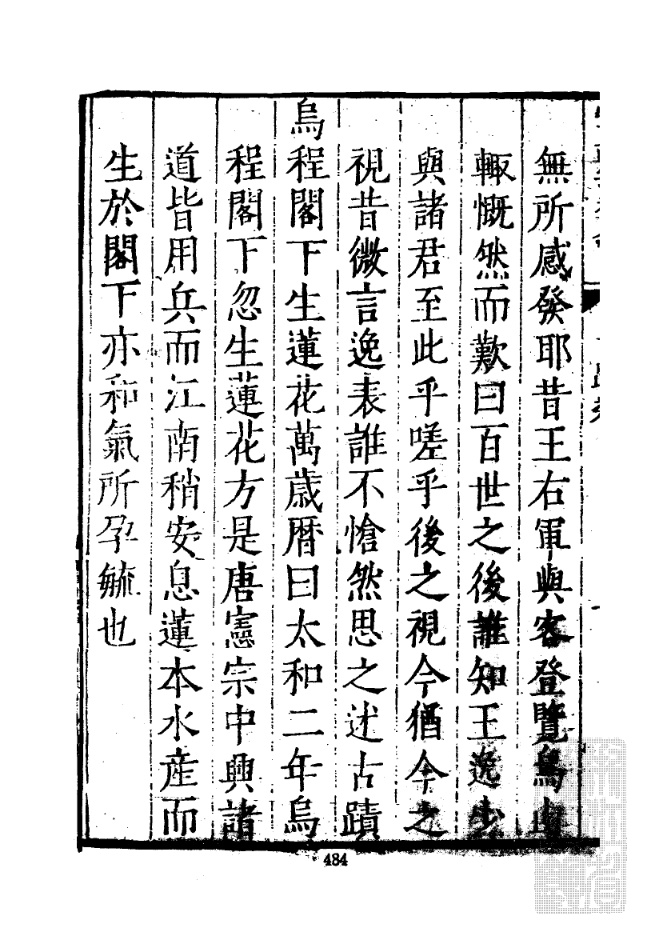 無所感發耶昔王右軍與客登覽烏山
輙慨然而歎曰百世之後誰知王逸少
與諸君至此乎嗟乎後之視今猶今之
視昔微言逸表誰不愴然思之述古蹟
烏程閣下生蓮花萬歲曆曰太和二年烏
程閣下忽生蓮花方是唐憲宗中興諸
道皆用兵而江南稍安息蓮本水產而
生於閣下亦和氣所孕毓也
484